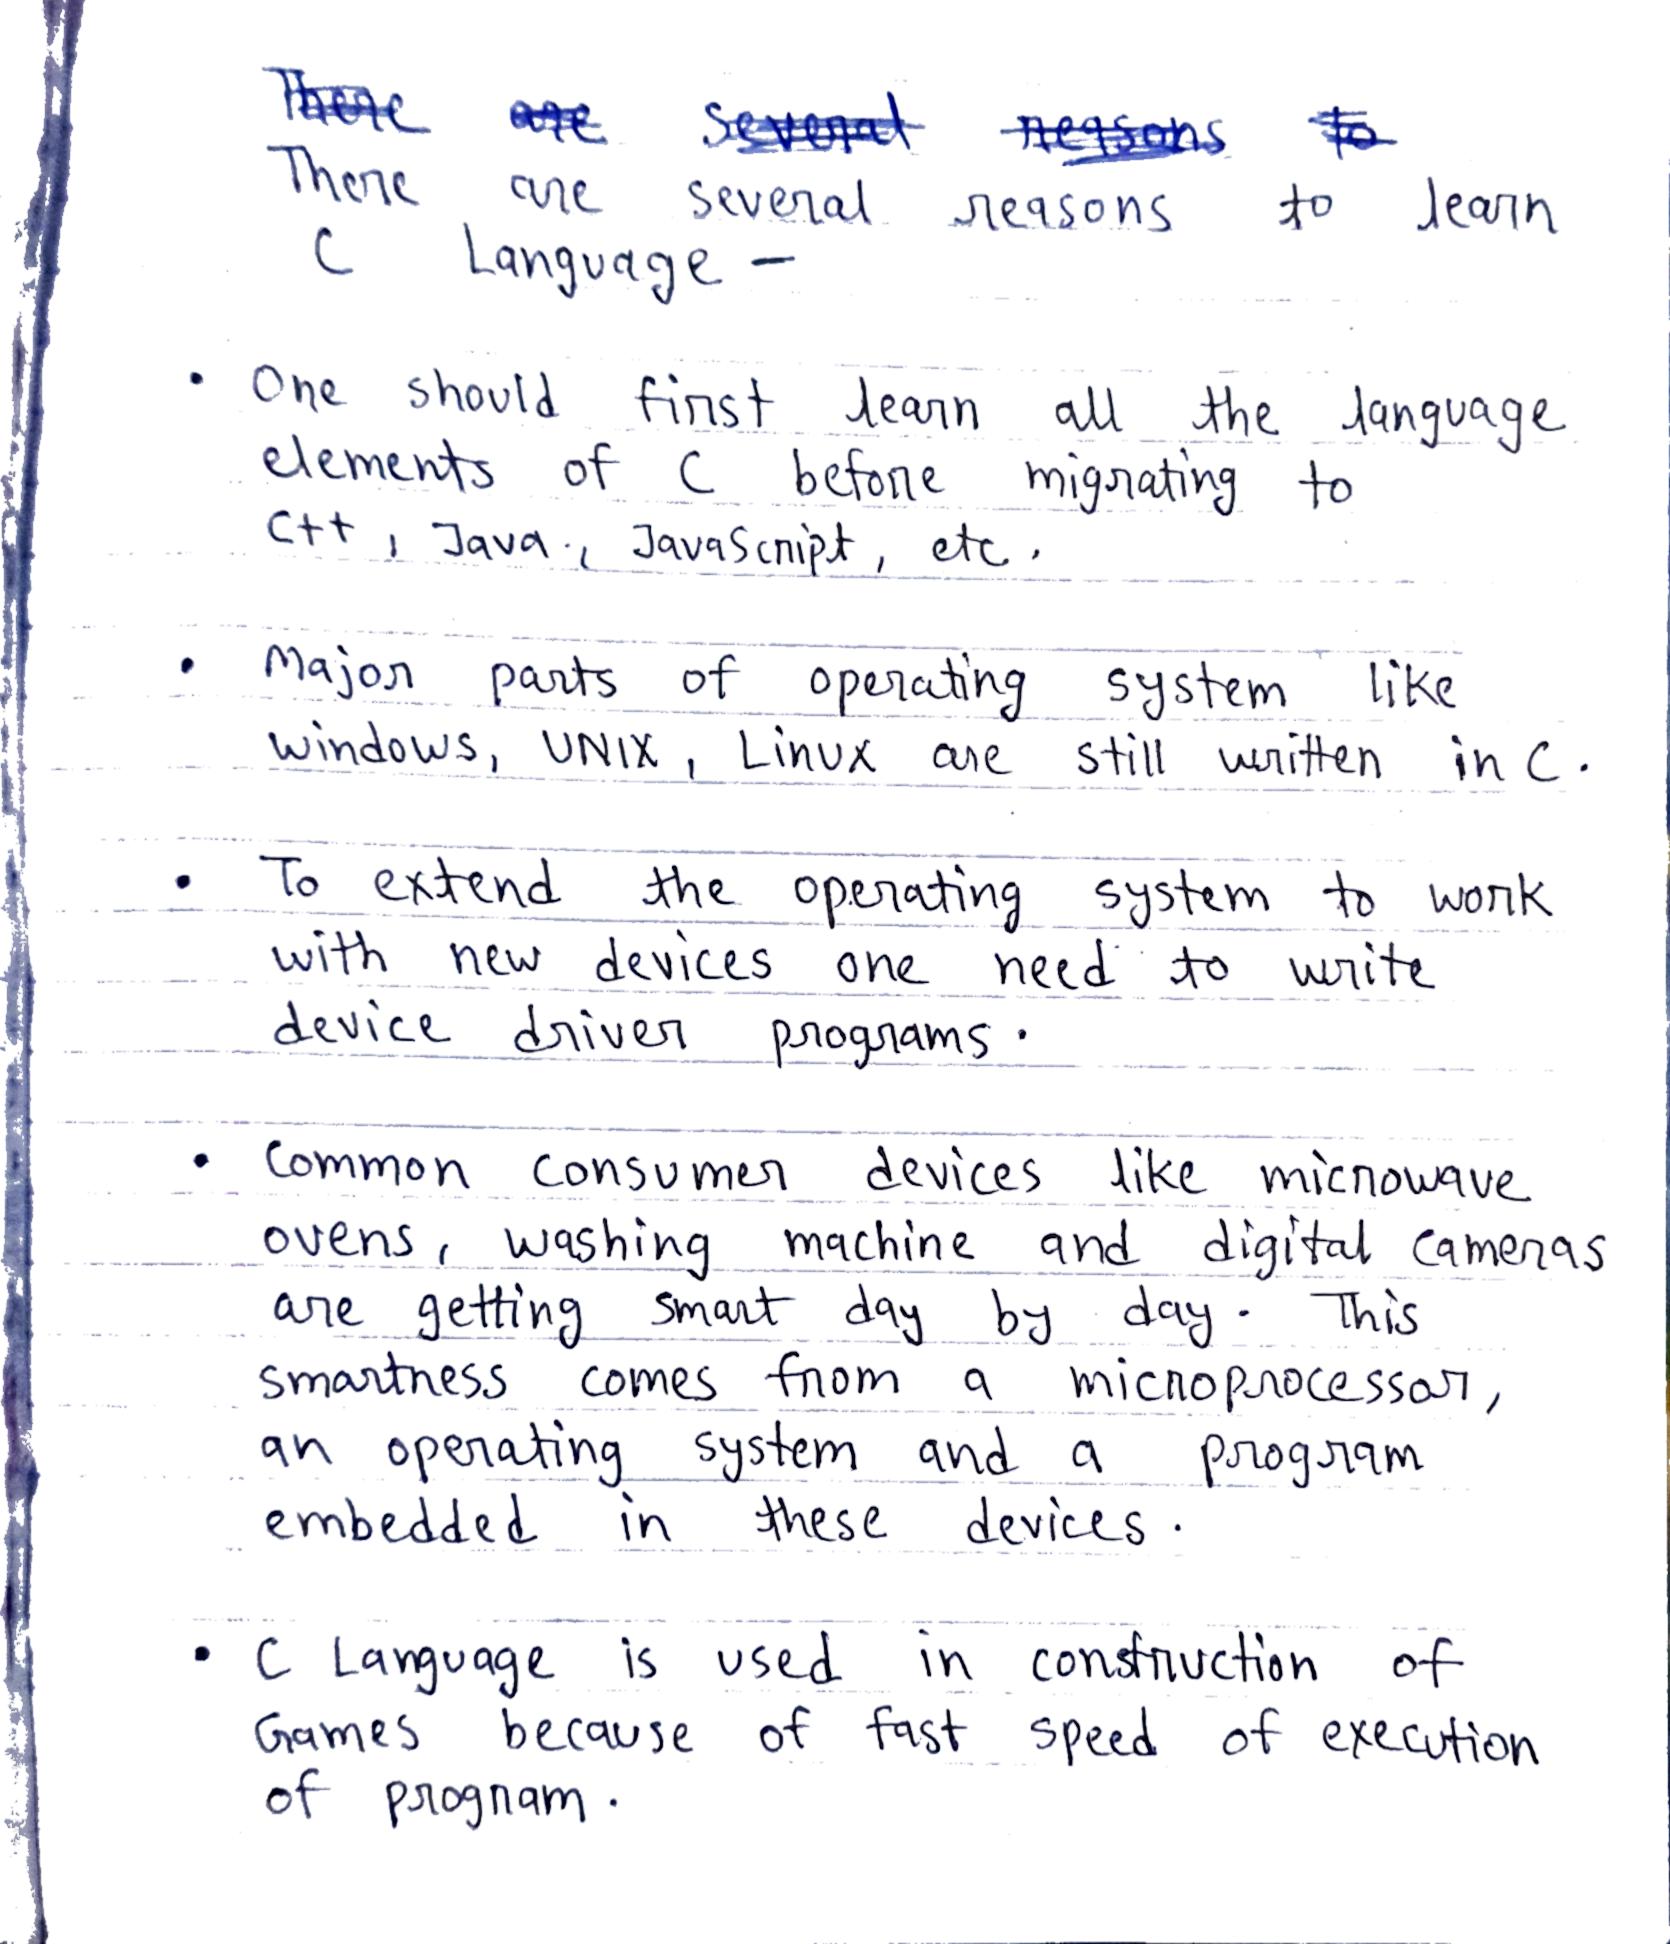 There are several reasons to
There are several reasons to learn
C Language -
• One should first learn all the language
elements of C before migrating to
C++, Java., JavaScript, etc.
• Major parts of operating system like
windows, UNIX, Linux are still written in C.
• To extend the operating system to work
with new devices one need to write
device driver programs.
• Common consumer devices like microwave
ovens, washing machine and digital cameras
are getting smart day by day. This
smartness comes from a microprocessor,
an operating system and a program
embedded in these devices.
• C Language is used in construction of
Games because of fast speed of execution
of program.